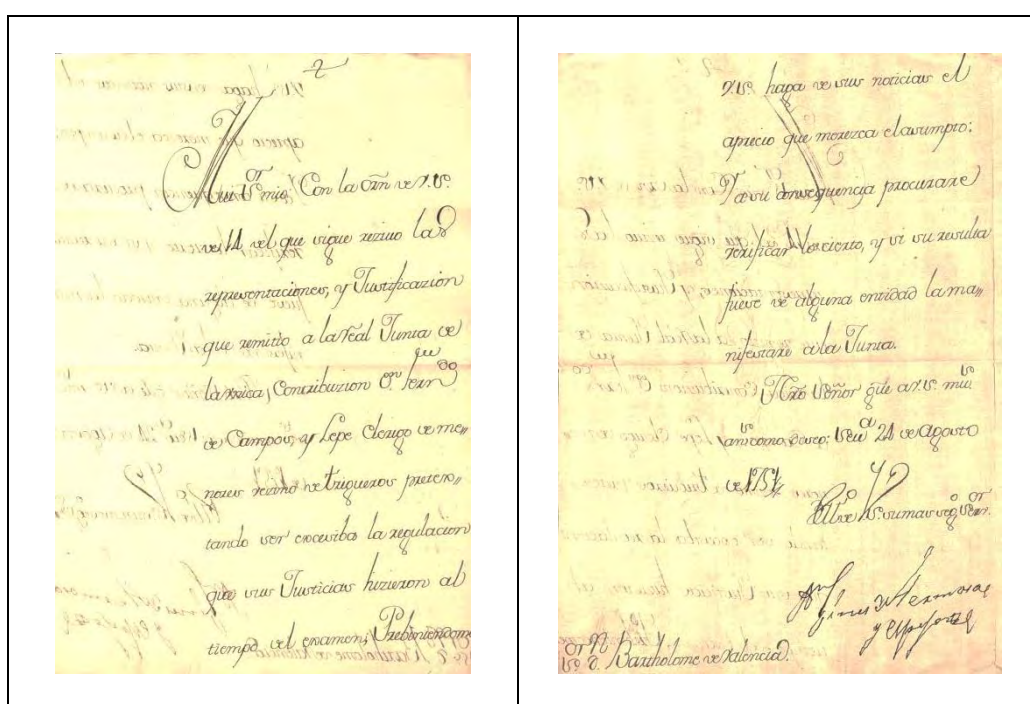 2
Mui S.or mio; Con la orñ de V.S.
de 14 del que sigue recivo las
representaciones, y Justificazion
que remitio a la Real Junta de
la unica Contribuzion Dn Fern.do
de Campos, y Lepe Clerigo de me„
nores vezino de Trigueros preten„
tando ser excesiba la regulacion
que sus Justicias hizieron al
tiempo del examen; Prebiniendome
V.S. haga de sus noticias el
aprecio que merezca el asumpto:
a su consequencia procurare
verificar lo cierto, y si su resulta
fuese de alguna entidad la ma„
nifestare a la Junta.
Nro Señor gũe a V.S. m.s
an.s como deseo: Sev.a 21 de Agosto
de 1757
BlM de V.S. su mas seg.o Ser.or
Dn Gines de Hermosa
y Espejo
S.or Dn Bartholome de Valencia.